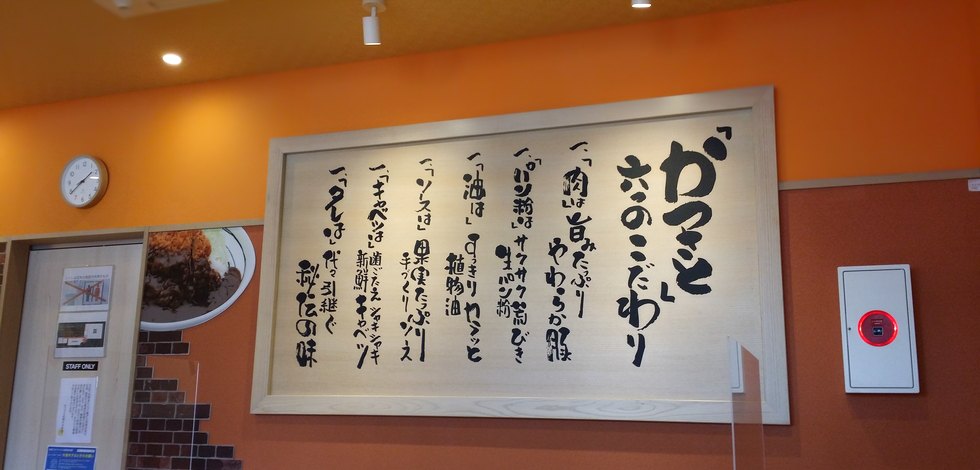 「かつさと」
六つのこだわり
一、「肉は」旨みたっぷり
やわらか豚
一、「パン粉は」サクサク荒びき
生パン粉
一、「油は」すっきりカラッと
植物油
一、「ソースは」果実たっぷり
手づくりソース
一、「キャベツは」歯ごたえシャキシャキ
新鮮キャベツ
一、「タレは」代々引継ぐ
秘伝の味
STAFF ONLY